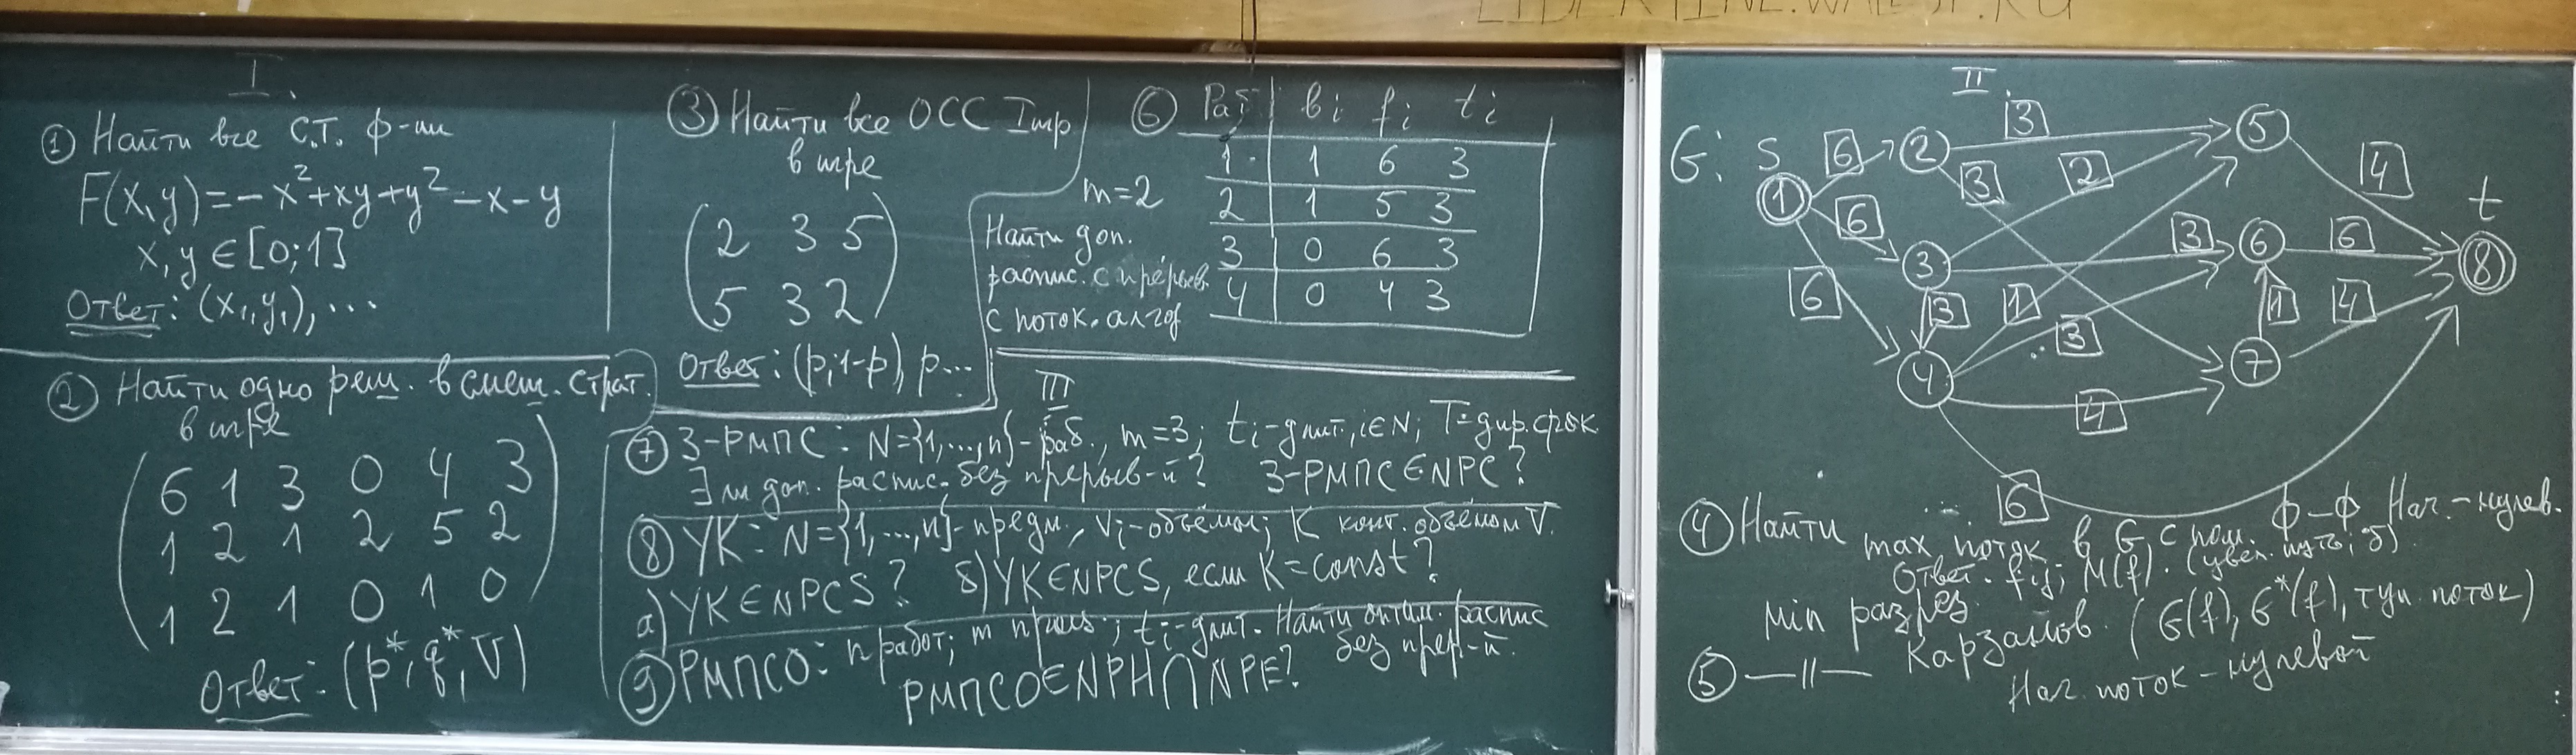 LIBERTINE.WALESI.RU
I.
① Найти все С.Т. ф-ии
F(x,y)=-x²+xy+y²-x-y
x,y∈[0;1]
Ответ: (x₁,y₁), ...
② Найти одно реш. в смеш. страт.
в игре
6 1 3 0 4 3
1 2 1 2 5 2
1 2 1 0 1 0
Ответ: (p*, q*, V)
③ Найти все ОСС I игр
в игре
2 3 5
5 3 2
Ответ: (p, 1-p), p...
⑥ Раб bᵢ fᵢ tᵢ
1 1 6 3
2 1 5 3
3 0 6 3
4 0 4 3
m=2
Найти доп.
распис. с прерыв
с поток. алгор
III
⑦ 3-РМПС: N={1,...,n}-раб., m=3; tᵢ-длит., i∈N; T=дир. срок.
∃ ли доп. распис. без прерыв-й? 3-РМПС∈NPC?
⑧ УК: N={1,...,n}-предм., Vᵢ-объёмы; K конт. объёмом V.
а) УК∈NPCS? б) УК∈NPCS, если K=const?
⑨ РМПСО: n работ; m проц.; tᵢ-длит. Найти оптим. распис
без прер-й.
РМПСО∈NPH∩NPE?
II.
G: S 1 2 3 4 5 6 7 8 t
6 6 6 3 3 2 3 3 1 3 4 6 4 6 4 1
④ Найти max поток в G с пом. Ф-Ф Нач.-нулев.
Ответ: fᵢⱼ; M(f). (увел. путь; δ).
min разрез.
⑤ —॥— Карзанов. (G(f), G*(f), туп. поток)
Нач. поток - нулевой